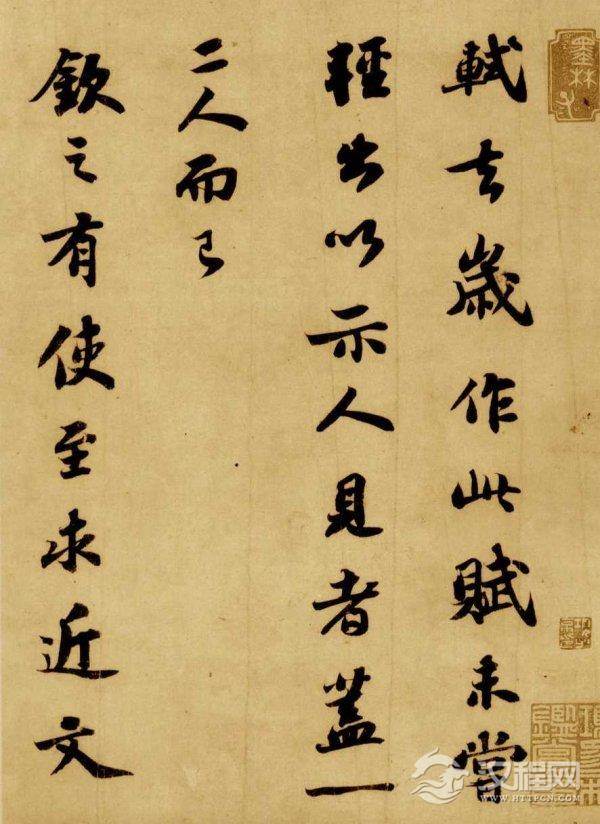 軾去歲作此賦未嘗
輕出以示人見者蓋一
二人而已
欽之有使至求近文
墨林
汉程网
WWW.HTTPCN.COM